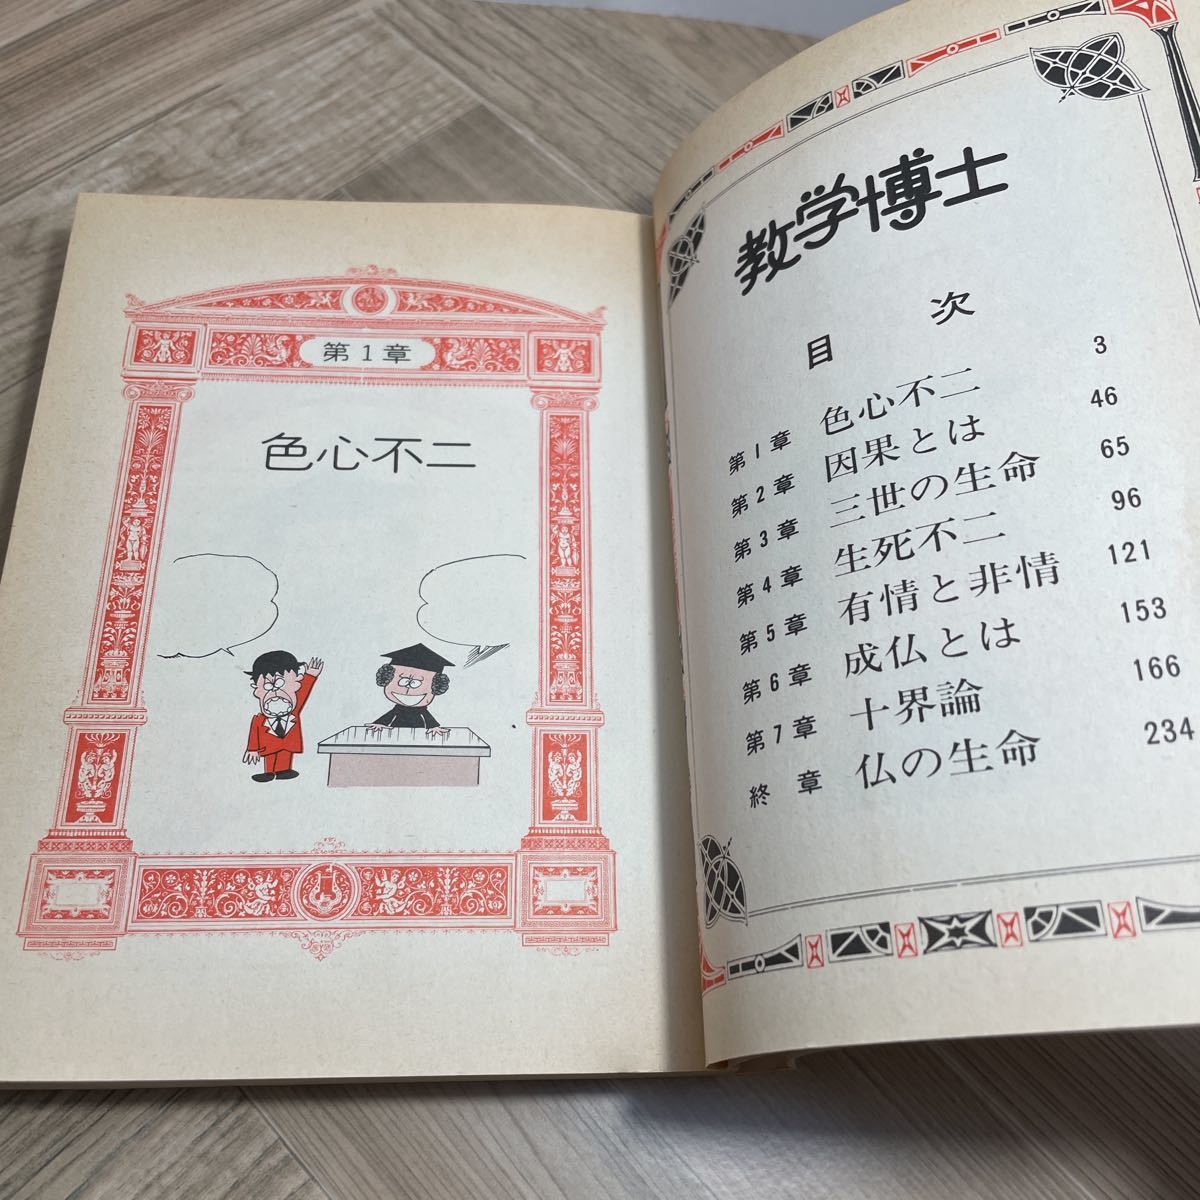 教学博士
目次
第1章 色心不二 3
第2章 因果とは 46
第3章 三世の生命 65
第4章 生死不二 96
第5章 有情と非情 121
第6章 成仏とは 153
第7章 十界論 166
終章 仏の生命 234
第1章
色心不二